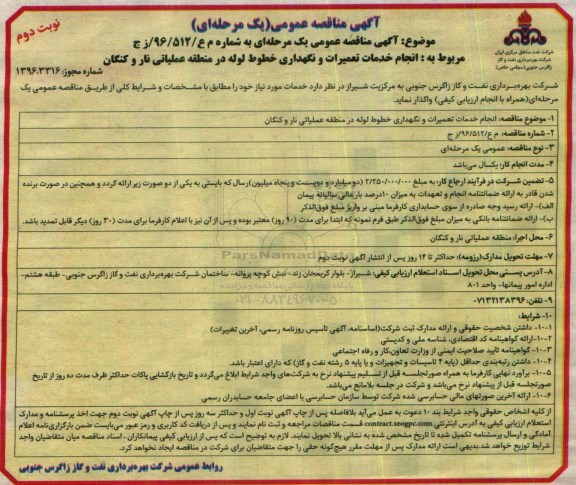 آگهی مناقصه عمومی(یک مرحله‌ای)
نوبت دوم
موضوع: آگهی مناقصه عمومی یک مرحله‌ای به شماره م ع/۹۶/۵۱۲/ز ج
مربوط به : انجام خدمات تعمیرات و نگهداری خطوط لوله در منطقه عملیاتی نار و کنگان
شرکت نفت مناطق مرکزی ایران
شرکت بهره‌برداری نفت و گاز
زاگرس جنوبی(سهامی خاص)
شماره مجوز: ۱۳۹۶.۳۳۱۶
شرکت بهره‌برداری نفت و گاز زاگرس جنوبی به مرکزیت شیراز در نظر دارد خدمات مورد نیاز خود را مطابق با مشخصات و شرایط کلی از طریق مناقصه عمومی یک
مرحله‌ای(همراه با انجام ارزیابی کیفی) واگذار نماید.
۱- موضوع مناقصه: انجام خدمات تعمیرات و نگهداری خطوط لوله در منطقه عملیاتی نار و کنگان
۲- شماره مناقصه: م ع/۹۶/۵۱۲/ز ج
۳- نوع مناقصه: عمومی یک مرحله‌ای
۴- مدت انجام کار: یکسال می‌باشد
۵- تضمین شرکت در فرآیند ارجاع کار: به مبلغ ۲/۲۵۰/۰۰۰/۰۰۰ (دو میلیارد و دویست و پنجاه میلیون)ریال که بایستی به یکی از دو صورت زیر ارائه گردد و همچنین در صورت برنده
شدن قادر به ارائه ضمانتنامه انجام و تعهدات به میزان ۱۰درصد بار مالی سالیانه پیمان
الف)- ارائه رسید وجه صادره از سوی حسابداری کارفرما مبنی بر واریز مبلغ فوق‌الذکر
ب)- ارائه ضمانتنامه بانکی به میزان مبلغ فوق‌الذکر طبق فرم نمونه که ابتدا برای مدت (۹۰ روز) معتبر بوده و پس از آن نیز با اعلام کارفرما برای مدت (۳۰ روز) دیگر قابل تمدید باشد.
۶- محل اجرا: منطقه عملیاتی نار و کنگان
۷- مهلت تحویل مدارک(رزومه): حداکثر تا ۱۴ روز پس از انتشار آگهی نوبت دوم
۸- آدرس پستی محل تحویل اسناد استعلام ارزیابی کیفی: شیراز- بلوار کریمخان زند- نبش کوچه پروانه- ساختمان شرکت بهره‌برداری نفت و گاز زاگرس جنوبی- طبقه هشتم-
اداره امور پیمانها- واحد ۸۰۱
۹- تلفن: ۰۷۱۳۲۱۳۸۳۹۶
۱۰- شرایط:
۱-۱۰- داشتن شخصیت حقوقی و ارائه مدارک ثبت شرکت(اساسنامه، آگهی تاسیس روزنامه رسمی، آخرین تغییرات)
۲-۱۰- ارائه گواهینامه کد اقتصادی، شناسه ملی و کدپستی
۳-۱۰- گواهینامه تایید صلاحیت ایمنی از وزارت تعاون،کار و رفاه اجتماعی
۴-۱۰- داشتن رتبه‌بندی حداقل (پایه ۴ تاسیسات و تجهیزات و یا پایه ۵ رشته نفت و گاز) که دارای اعتبار باشد.
۵-۱۰- برآورد نهایی کارفرما به همراه صورتجلسه قبل از تسلیم پیشنهاد نرخ به شرکت‌های واجد شرایط ابلاغ می‌گردد و تاریخ بازگشایی پاکات حداکثر ظرف مدت ده روز از تاریخ
صورتجلسه قبل از پیشنهاد نرخ می‌باشد و شرکت در جلسه بلامانع می‌باشد.
۶-۱۰- ارائه آخرین صورتهای مالی حسابرسی شده شرکت توسط سازمان حسابرسی یا اعضای جامعه حسابداران رسمی.
از کلیه اشخاص حقوقی واجد شرایط بند ۱۰ دعوت به عمل می‌آید بلافاصله پس از چاپ آگهی نوبت اول و حداکثر سه روز پس از چاپ آگهی نوبت دوم جهت اخذ پرسشنامه و مدارک
استعلام ارزیابی کیفی به آدرس اینترنتی contract.szogpc.com قسمت مناقصات مراجعه و ثبت نام نمایند و پس از دریافت کد کاربری و رمز عبور می‌بایست ضمن بارگزاری‌نامه اعلام
آمادگی و ارسال پرسشنامه تکمیل شده تا تاریخ مشخص شده به نشانی بالا تحویل نمایند. لازم به توضیح است که پس از ارزیابی کیفی پیمانکاران ، اسناد مناقصه میان متقاضیان واجد
شرایط توزیع خواهد شد.بدیهی است ارائه مدارک پس از مهلت مقرر هیچ‌گونه حقی را جهت متقاضیان برای شرکت در مناقصه ایجاد نخواهد کرد.
روابط عمومی شرکت بهره‌برداری نفت و گاز زاگرس جنوبی
ParsNamad
۰۲۱-۸۸۳۴۹۶۷۰-۵